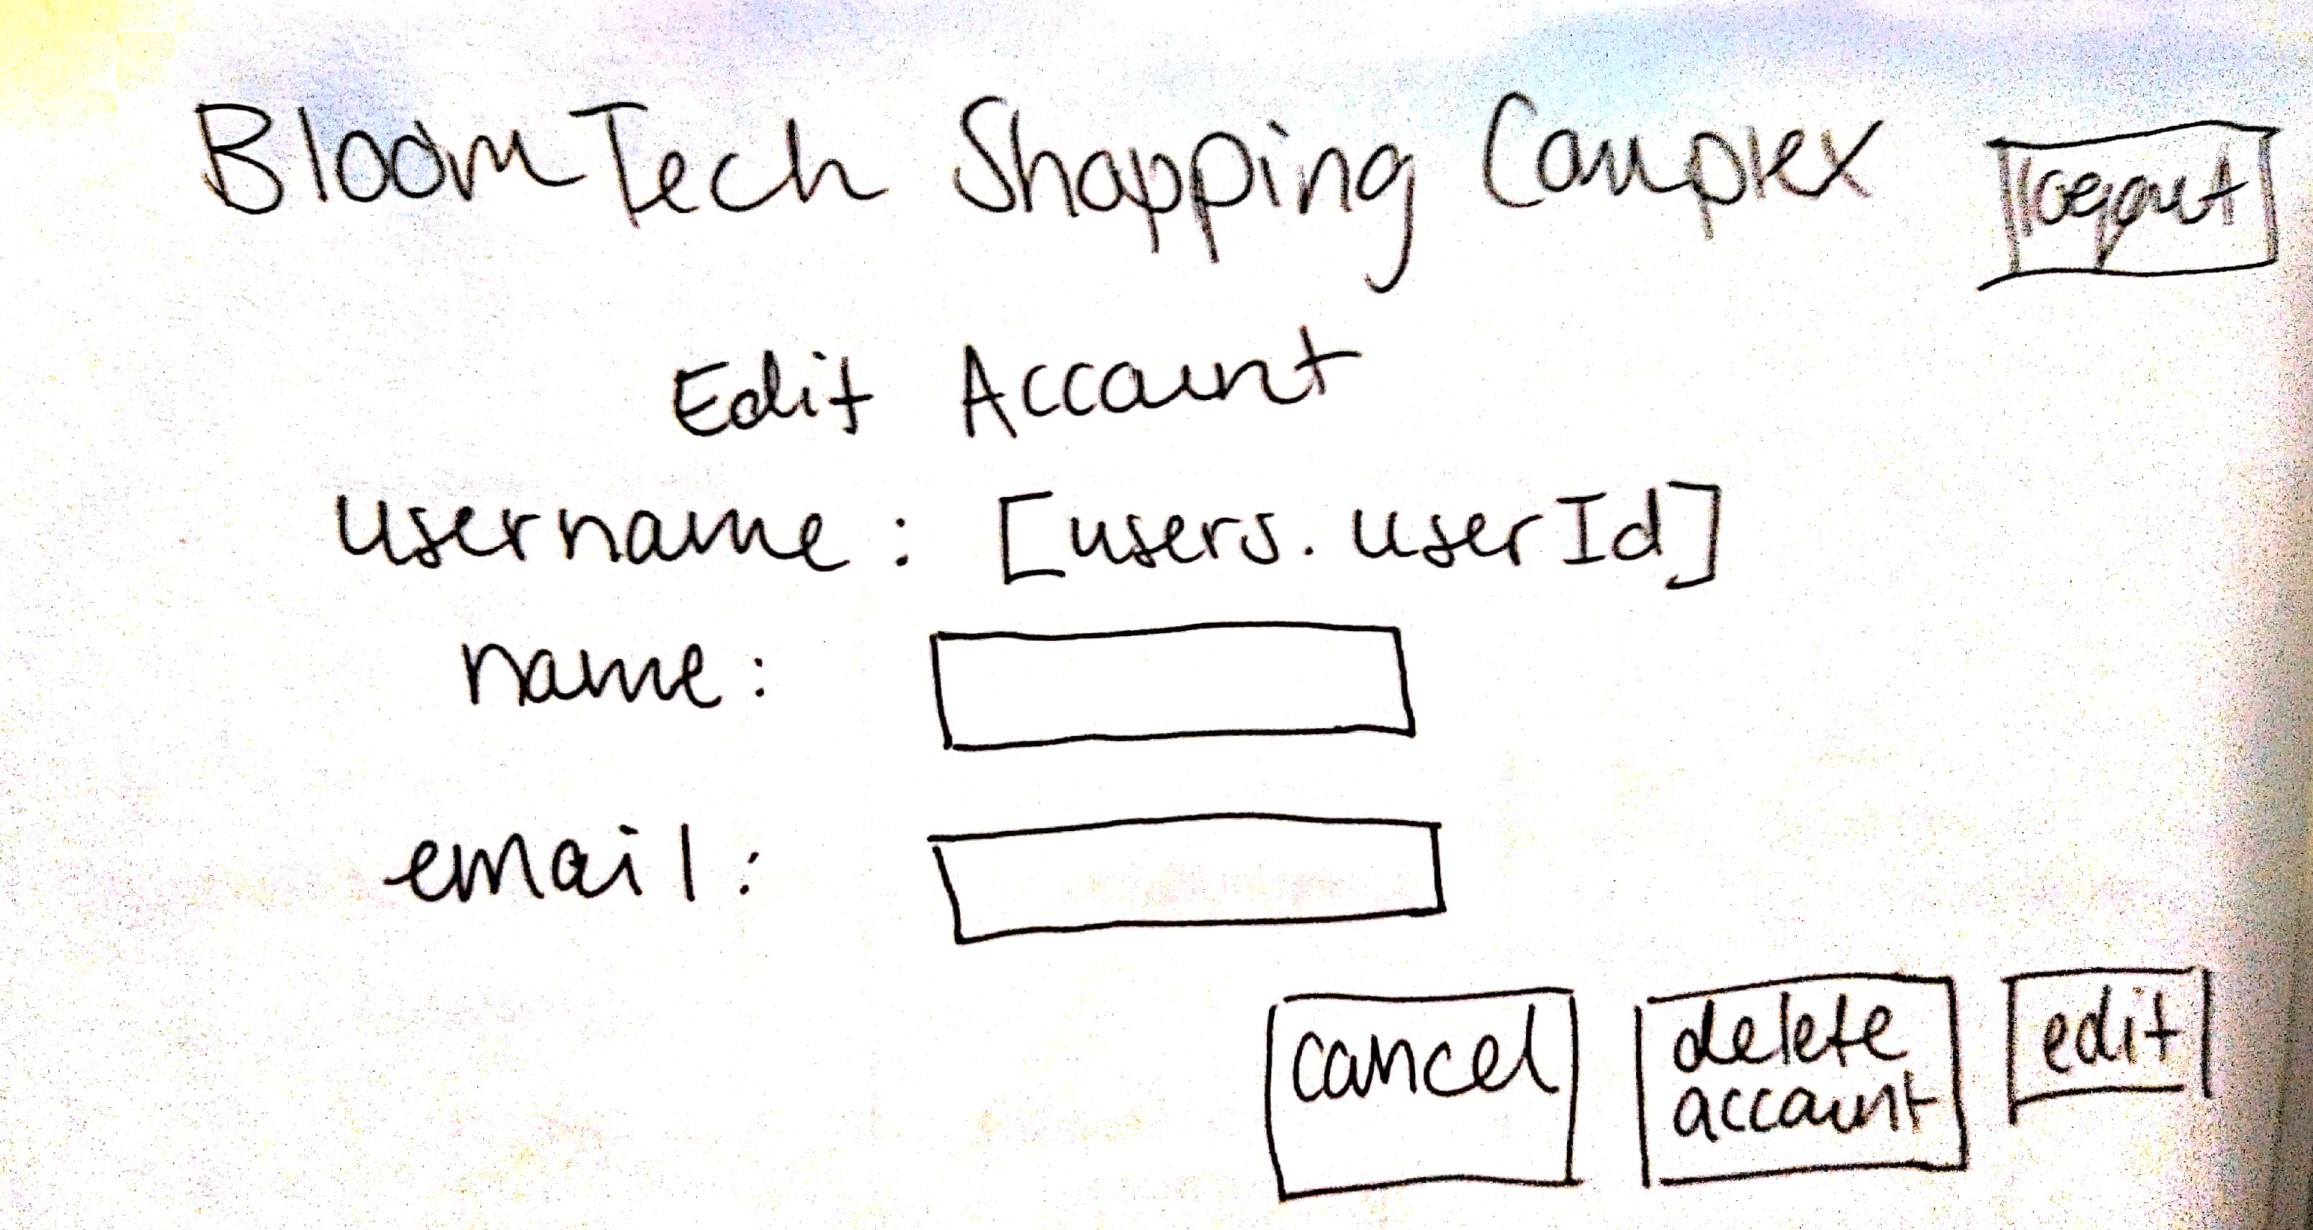 BloomTech Shopping Complex
logout
Edit Account
username : [users.userId]
name :
email :
cancel
delete
account
edit